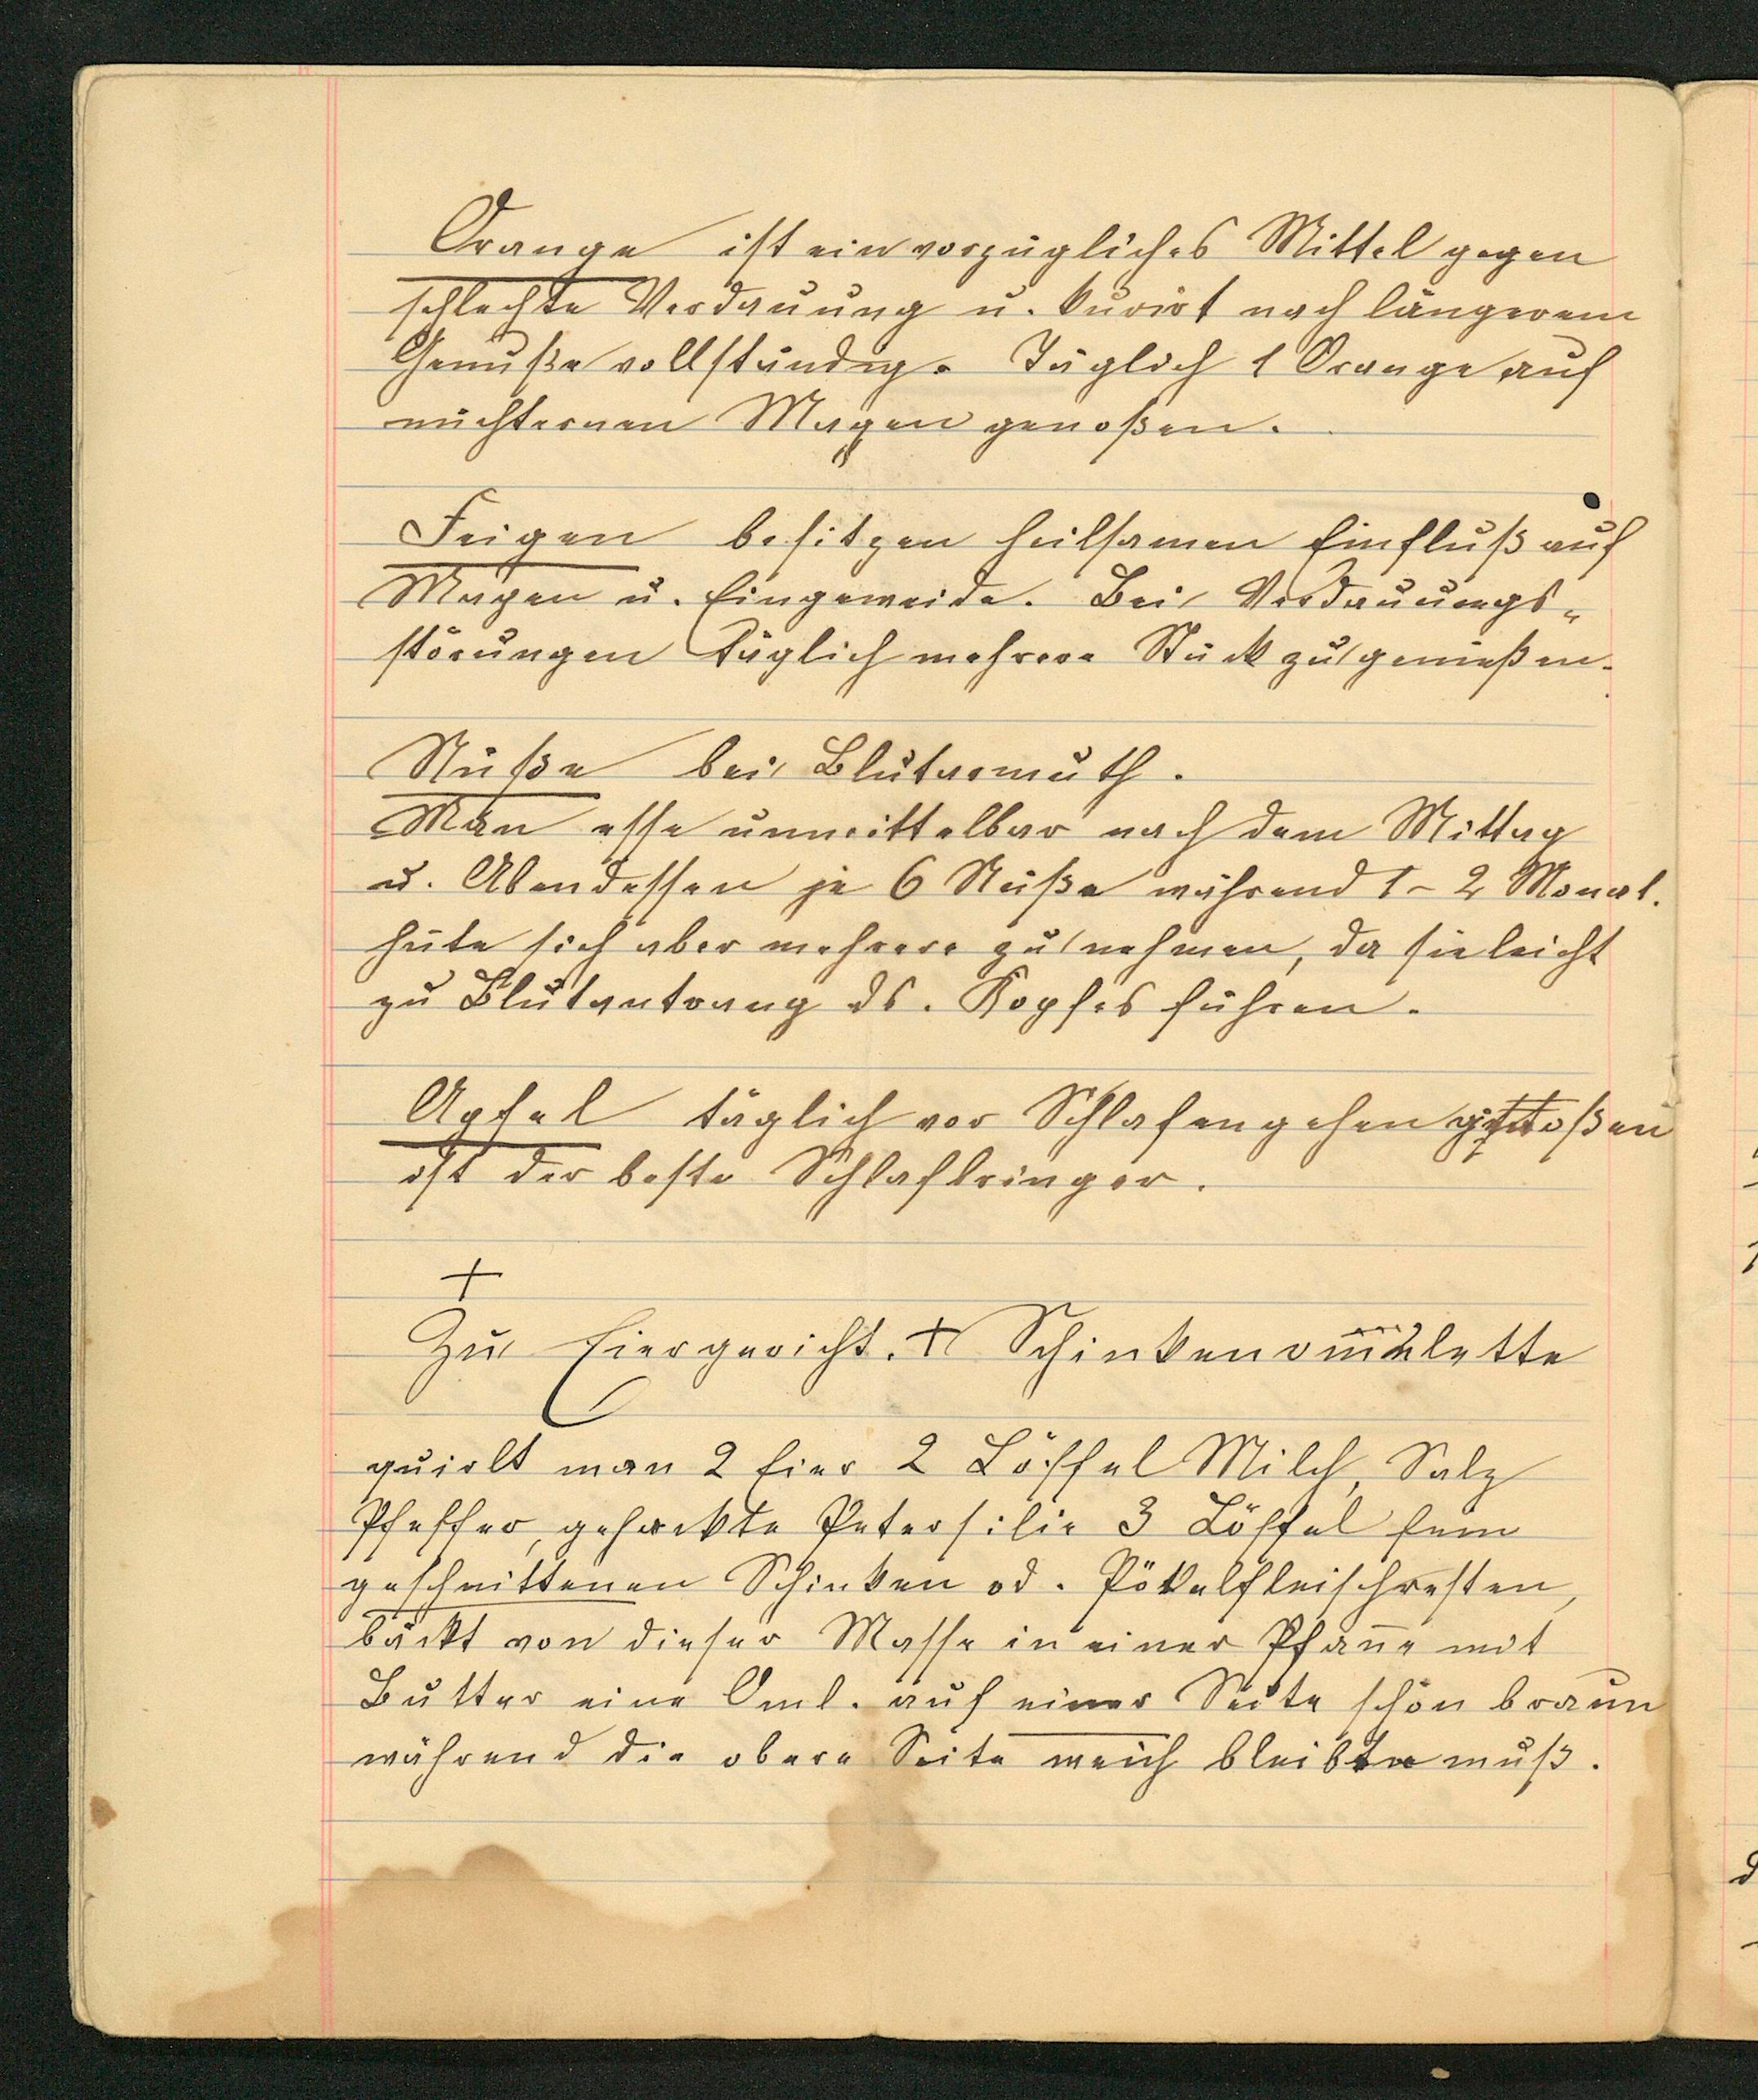 Orange ist ein vorzügliches Mittel gegen
schlechte Verdauung u. kurirt nach längerem
Genuße vollständig. Täglich 1 Orange auf
nüchternen Magen genoßen.
Feigen besitzen heilsamen Einfluß auf
Magen u. Eingeweide. Bei Verdauungs-
störungen täglich mehrere Stück zu genießen.
Nüße bei Blutarmuth.
Man esse unmittelbar nach dem Mittag
u. Abendessen je 6 Nüße während 1-2 Monat.
hüte sich aber mehrere zu nehmen, da sie leicht
zu Blutantrang ds. Kopfes führen.
Apfel täglich vor Schlafengehen genoßen
ist der beste Schlafbringer.
+
Zu Eiergericht. + Schinkenomelette
quirlt man 2 Eier 2 Löffel Milch, Salz
Pfeffer, gehackte Petersilie 3 Löffel fein
geschnittenen Schinken od. Pökelfleischresten,
bäckt von dieser Masse in einer Pfan̄e mit
Butter eine Oml. auf einer Seite schön braun
während die obere Seite weich bleiben muß.